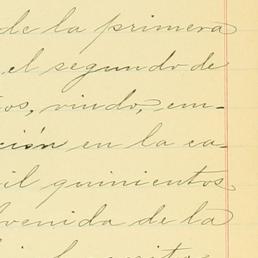 de la primera
el segundo de
os, viudo, em-
ción en la ca-
il quinientos
venida de la